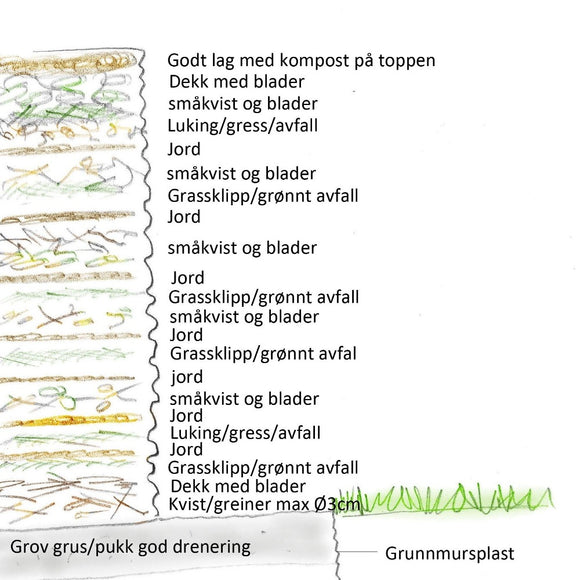 Godt lag med kompost på toppen
Dekk med blader
småkvist og blader
Luking/gress/avfall
Jord
småkvist og blader
Grassklipp/grønnt avfall
Jord
småkvist og blader
Jord
Grassklipp/grønnt avfall
småkvist og blader
Jord
Grassklipp/grønnt avfal
jord
småkvist og blader
Jord
Luking/gress/avfall
Jord
Grassklipp/grønnt avfall
Dekk med blader
Kvist/greiner max Ø3cm
Grov grus/pukk god drenering
Grunnmursplast